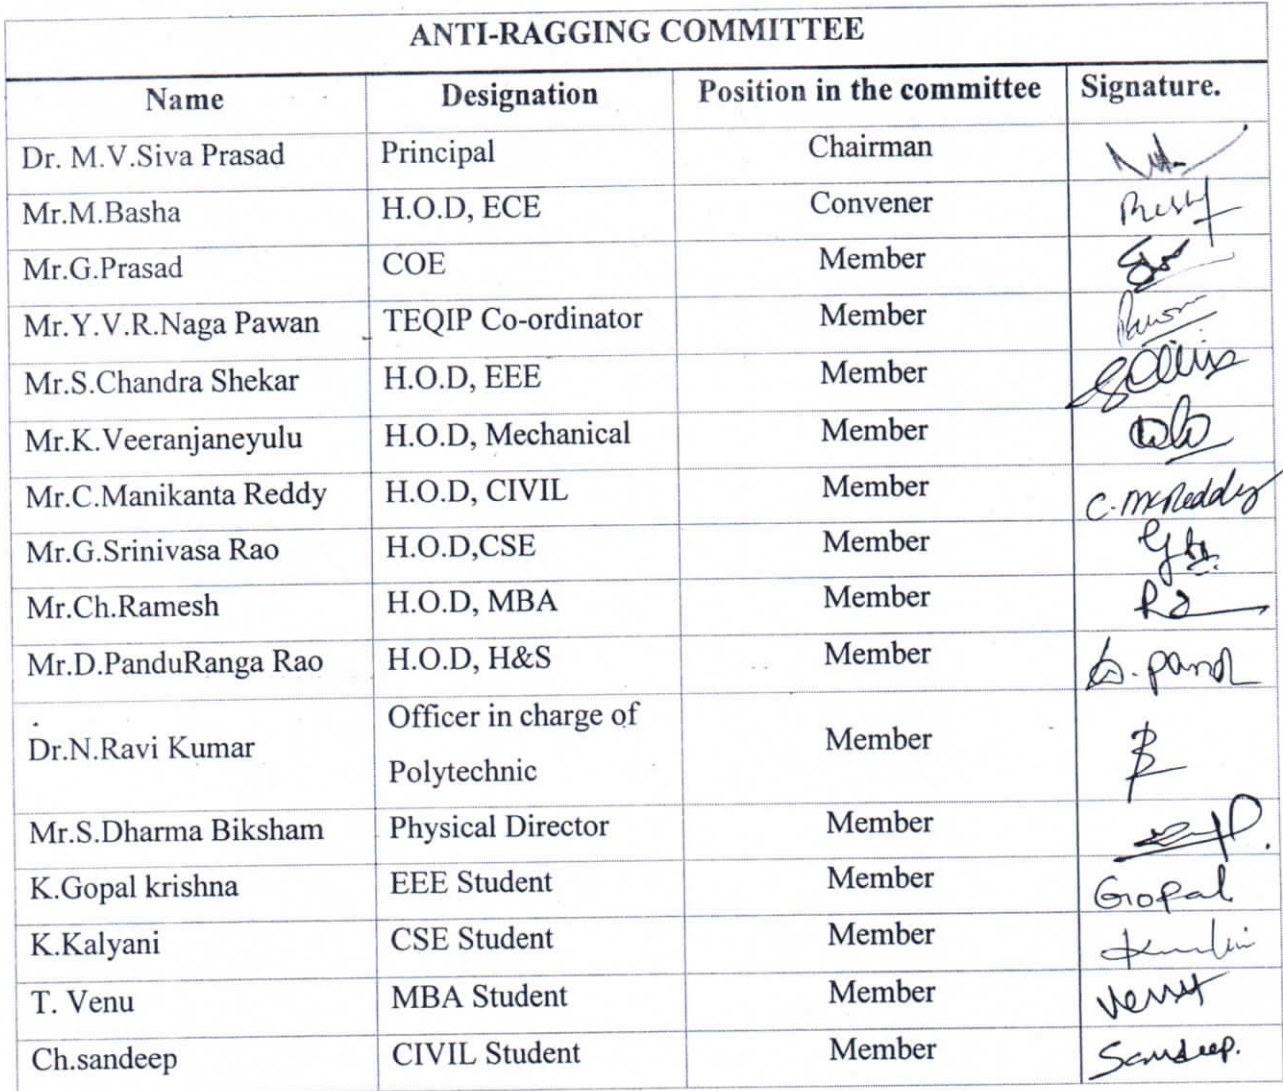 ANTI-RAGGING COMMITTEE
Name Designation Position in the committee Signature.
Dr. M.V.Siva Prasad Principal Chairman
Mr.M.Basha H.O.D, ECE Convener
Mr.G.Prasad COE Member
Mr.Y.V.R.Naga Pawan TEQIP Co-ordinator Member
Mr.S.Chandra Shekar H.O.D, EEE Member
Mr.K.Veeranjaneyulu H.O.D, Mechanical Member
Mr.C.Manikanta Reddy H.O.D, CIVIL Member C.MKReddy
Mr.G.Srinivasa Rao H.O.D,CSE Member
Mr.Ch.Ramesh H.O.D, MBA Member
Mr.D.PanduRanga Rao H.O.D, H&S Member
Dr.N.Ravi Kumar Officer in charge of
Polytechnic Member
Mr.S.Dharma Biksham Physical Director Member
K.Gopal krishna EEE Student Member Gopal
K.Kalyani CSE Student Member
T. Venu MBA Student Member
Ch.sandeep CIVIL Student Member Sandeep.